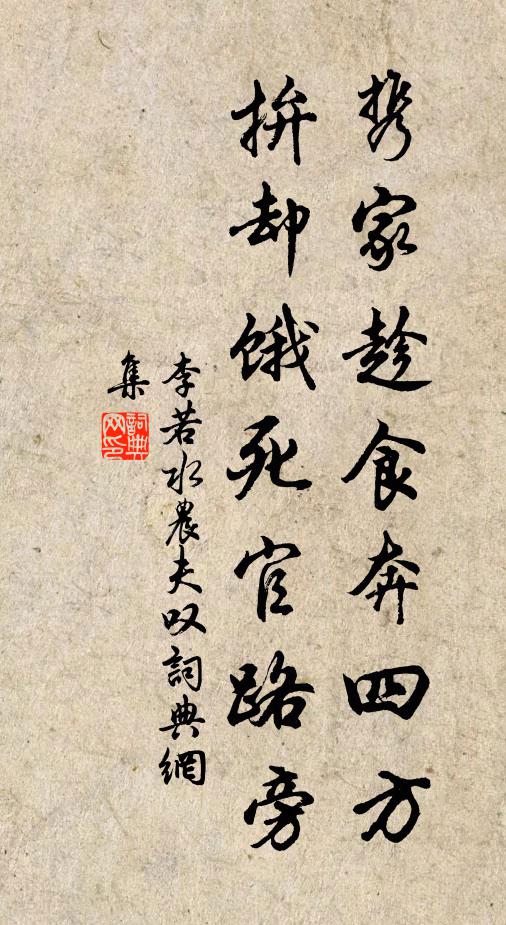 携家趁食奔四方
拚却饿死官路旁
李若水農夫叹詞典網
集
詞典网印